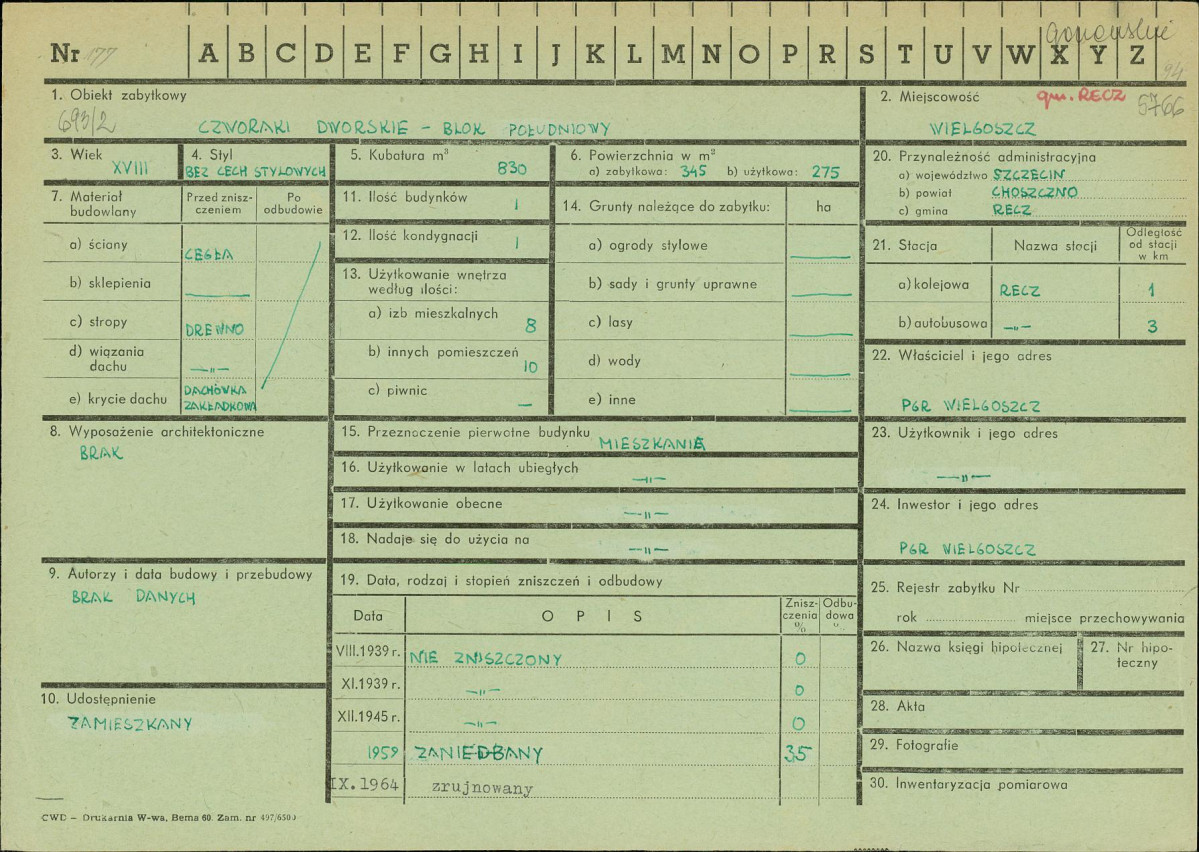 Nr 177 A B C D E F G H I J K L M N O P R S T U V W X Y Z
94
1. Obiekt zabytkowy
693/2
CZWORAKI DWORSKIE – BLOK POŁUDNIOWY
2. Miejscowość gm. RECZ 5766
WIELGOSZCZ
3. Wiek
XVIII
4. Styl
BEZ CECH STYLOWYCH
5. Kubatura m³
830
6. Powierzchnia w m²
a) zabytkowa: 345 b) użytkowa: 275
7. Materiał budowlany
Przed znisz-
czeniem
Po
odbudowie
a) ściany CEGŁA
b) sklepienia —
c) stropy DREWNO
d) wiązania
dachu —„—
e) krycie dachu DACHÓWKA
ZAKŁADKOWA
8. Wyposażenie architektoniczne
BRAK
9. Autorzy i data budowy i przebudowy
BRAK DANYCH
10. Udostępnienie
ZAMIESZKANY
11. Ilość budynków 1
12. Ilość kondygnacji 1
13. Użytkowanie wnętrza
według ilości:
a) izb mieszkalnych 8
b) innych pomieszczeń 10
c) piwnic —
14. Grunty należące do zabytku: ha
a) ogrody stylowe —
b) sady i grunty uprawne —
c) lasy —
d) wody —
e) inne —
15. Przeznaczenie pierwotne budynku MIESZKANIA
16. Użytkowanie w latach ubiegłych —„—
17. Użytkowanie obecne —„—
18. Nadaje się do użycia na —„—
19. Data, rodzaj i stopień zniszczeń i odbudowy
Data OPIS Znisz-
czenia
%
Odbu-
dowa
%
VIII.1939 r. NIE ZNISZCZONY 0
XI.1939 r. —„— 0
XII.1945 r. —„— 0
1959 ZANIEDBANY 35
IX.1964 zrujnowany
20. Przynależność administracyjna
a) województwo SZCZECIN
b) powiat CHOSZCZNO
c) gmina RECZ
21. Stacja Nazwa stacji Odległość
od stacji
w km
a) kolejowa RECZ 1
b) autobusowa —„— 3
22. Właściciel i jego adres
PGR WIELGOSZCZ
23. Użytkownik i jego adres
—„—
24. Inwestor i jego adres
PGR WIELGOSZCZ
25. Rejestr zabytku Nr
rok miejsce przechowywania
26. Nazwa księgi hipotecznej
27. Nr hipo-
teczny
28. Akta
29. Fotografie
30. Inwentaryzacja pomiarowa
CWD – Drukarnia W-wa, Bema 60. Zam. nr 497/6500